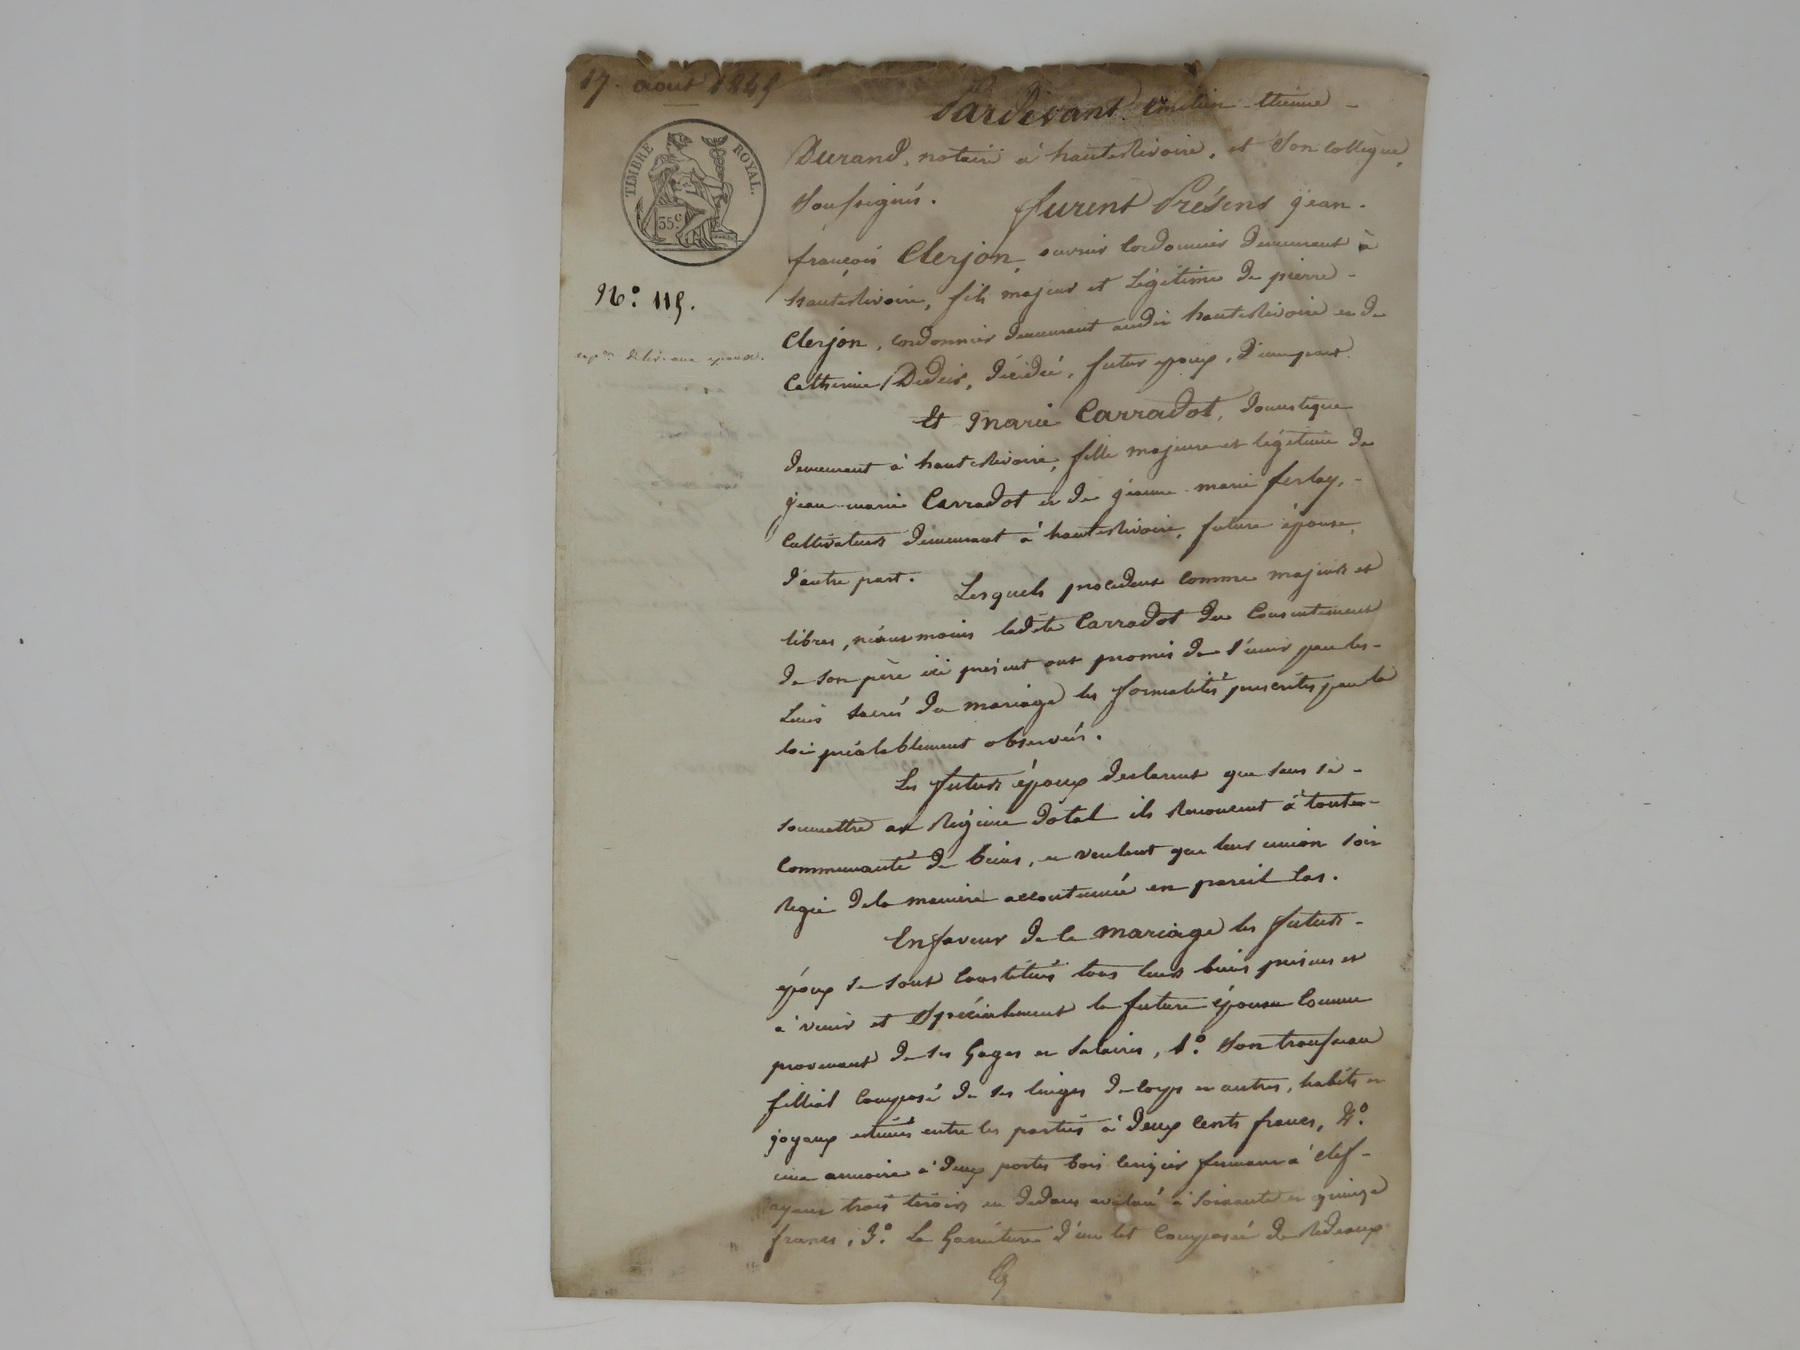 17. août 1845
Pardevant émilien-étienne -
Durand, notaire à hauterivoire, et son collègue,
soussignés. furent Présens jean-
françois Clerjon, ouvrier cordonnier demeurant à
hauterivoire, fils majeur et légitime de pierre -
Clerjon, cordonnier demeurant audit hauterivoire et de
Catherine, décédée, futur époux, d'une part.
Et marie Carradot, domestique
demeurant à hauterivoire, fille majeure et légitime de
jean-marie Carradot et de jeanne-marie ferlay, -
cultivateurs demeurant à hauterivoire, future épouse,
d'autre part. Lesquels procédant comme majeurs et
libres, néanmoins ladite Carradot du consentement
de son père ici présent ont promis de s'unir par les -
liens sacrés du mariage les formalités prescrites par la
loi préalablement observées.
Les futurs époux déclarent que sans se -
soumettre au régime dotal ils renoncent à toute -
communauté de biens, et veulent que leur union soit
régie de la manière accoutumée en pareil cas.
En faveur de ce mariage les futurs -
époux se sont constitués tous leurs biens présens et
à venir et spécialement la future épouse comme
provenant de ses gages et salaires, 1.° son trousseau
filliat composé de ses linges de corps et autres, habits et
joyaux estimés entre les parties à deux cents francs, 2.°
une armoire à deux portes bois cerisier fermant à clef -
ayant trois tiroirs en dedans évalué à soixante et quinze
francs, 3.° la garniture d'un lit composée de rideaux
TIMBRE ROYAL.
35c
N.° 115.
exp.on délivrée aux époux.